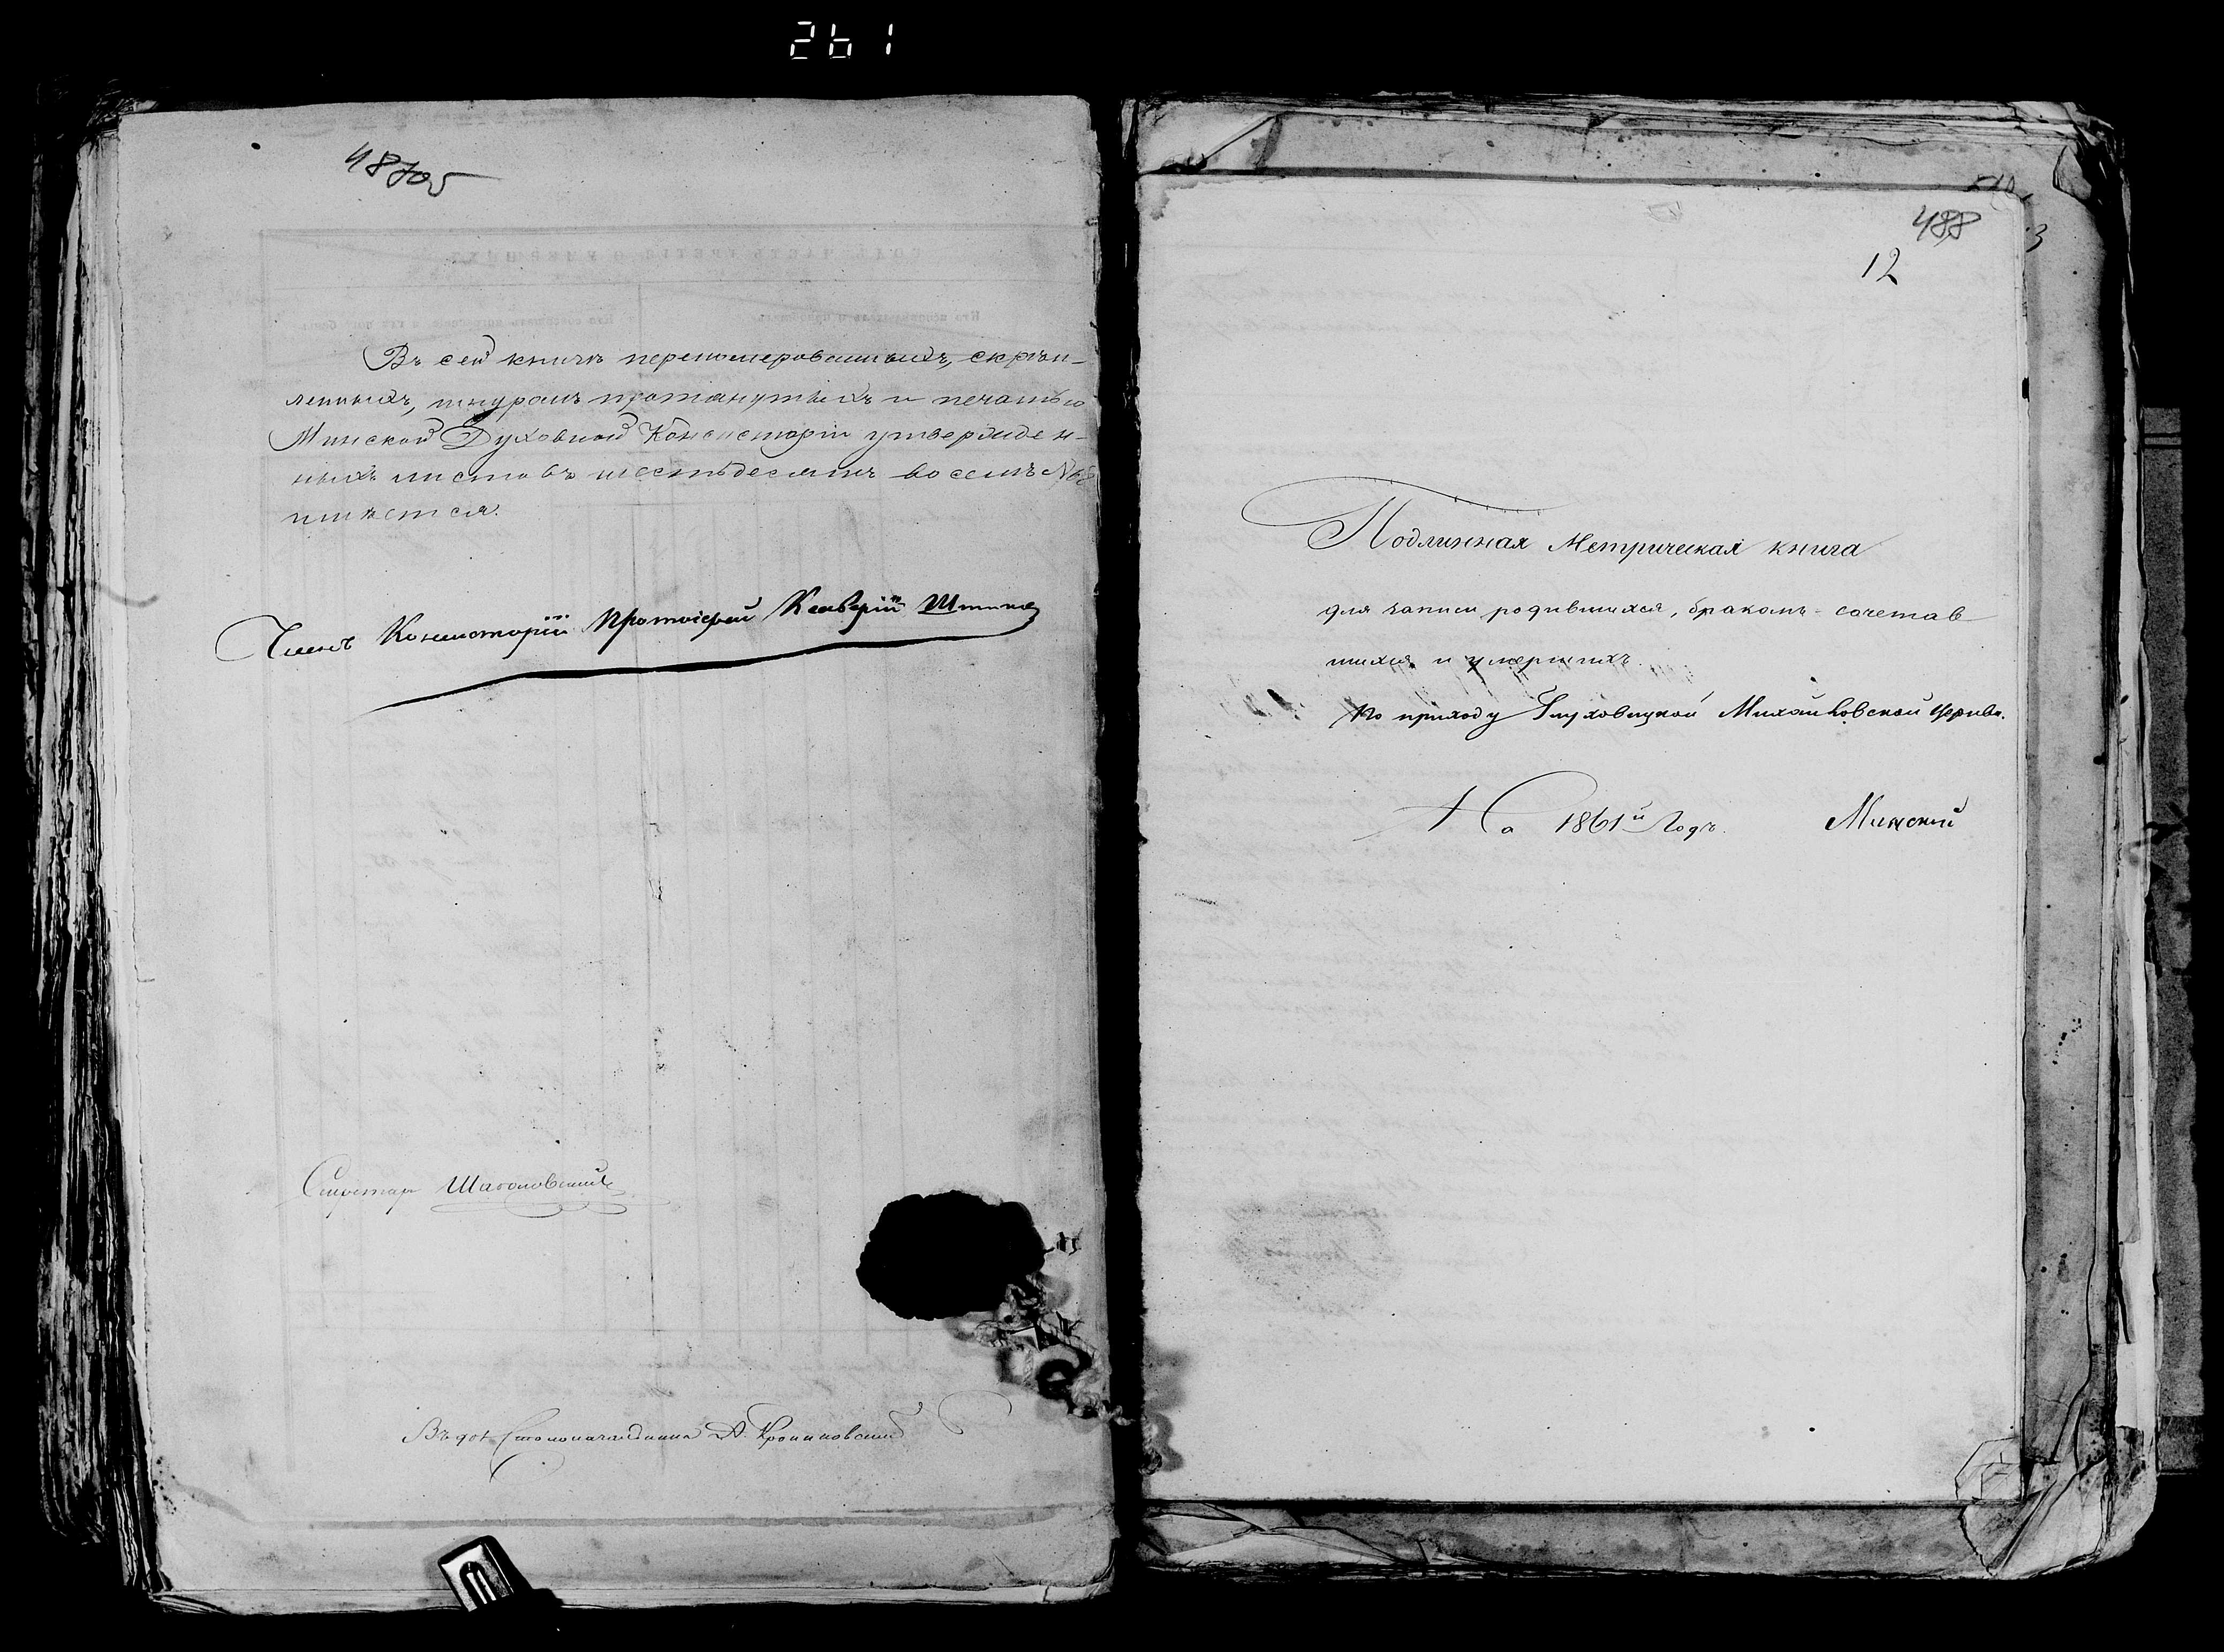 261
48705
Въ сей книгѣ перенумерованныхъ, скрѣп-
ленныхъ, шнуромъ протянутыхъ и печатью
Минской Духовной Консисторіи утвержден-
ныхъ листовъ шестьдесятъ восемь № 68
имѣется.
Членъ Консисторіи Протоіерей
Секретарь
Въ дол Столоначальника А.
488
12
Подлинная Метрическая книга
для записи родившихся, бракомъ сочетав
шихся и умершихъ.
По приходу Глуховицкой Михайловской Церкви.
На 1861й Годъ. Минский